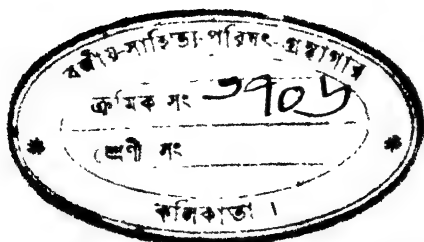 বঙ্গীয়-সাহিত্য-পরিষৎ-গ্রন্থাগার
ক্রমিক সং ৩৭০৬
শ্রেণী সং
* *
কলিকাতা ।